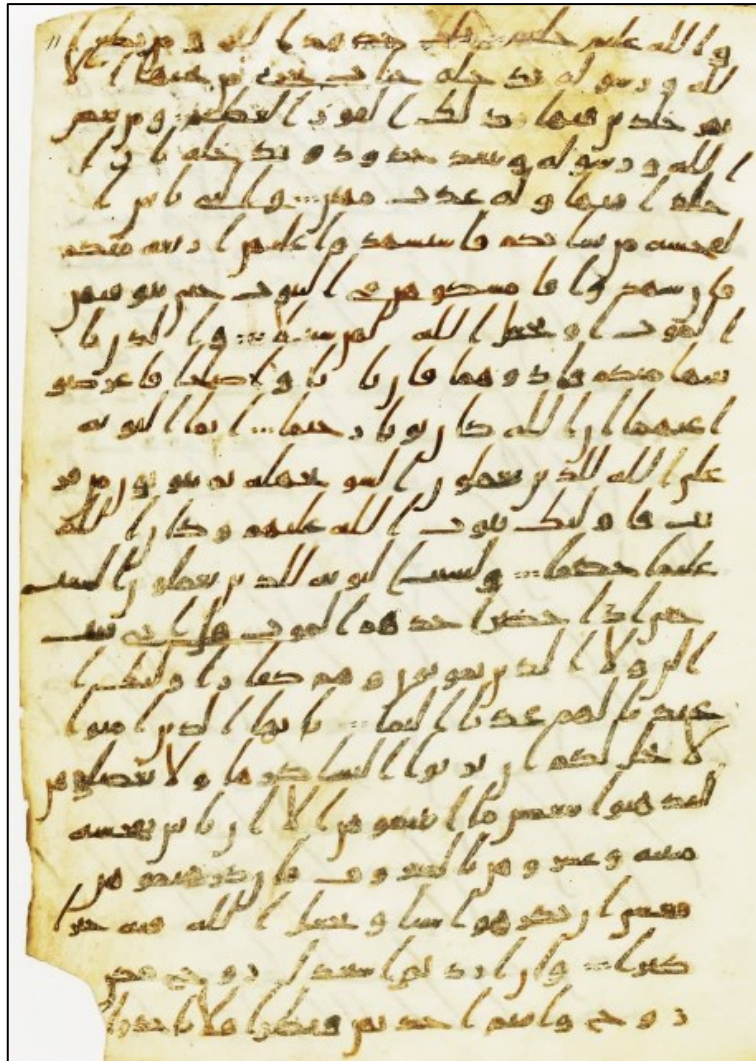 11
والله عليم حليم تلك حدود الله ومن يطع ا
لله ورسوله ندخله جنت تجري من تحتها الا
نهر خلدين فيها وذلك الفوز العظيم ومن يعص
الله ورسوله ويتعد حدوده ندخله نارا
خلدا فيها وله عذب مهين والتي ياتين ا
لفحشة من نسائكم فاستشهدوا عليهن اربعة منكم
فان شهدوا فامسكوهن في البيوت حتى يتوفهن
الموت او يجعل الله لهن سبيلا والذن يا
تينها منكم فاذوهما فان تابا واصلحا فاعرضو
ا عنهما ان الله كان توابا رحيما انما التوبة
على الله للذين يعملون السو بجهلة ثم يتوبون من قر
يب فاوليك يتوب الله عليهم وكان الله
عليما حكيما وليست التوبة للذين يعملون السيت
حتى اذا حضر احدهم الموت قال اني تبت
الن ولا الذين يموتون وهم كفار اوليك ا
عتدنا لهم عذبا اليما يايها الذين امنوا
لا يحل لكم ان ترثوا النسا كرها ولا تعضلوهن
لتذهبوا ببعض ما اتيتموهن الا ان ياتين بفحشة
مبينة وعشروهن بالمعروف فان كرهتموهن
فعسى ان تكرهوا شيا ويجعل الله فيه خيرا
كثيرا وان اردتم استبدل زوج مكن
زوج واتيتم احديهن قنطرا فلا تاخذوا